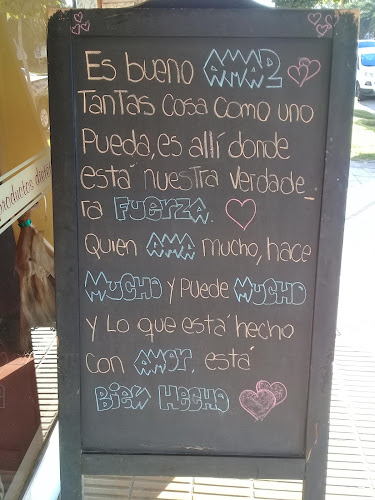 Es bueno AMAR
Tantas cosa como uno
Pueda, es allí donde
está nuestra verdade_
ra FUERZA.
Quien AMA mucho, hace
MUCHO y puede MUCHO
y lo que está hecho
con AMOR, está
BIEN HECHO
productos